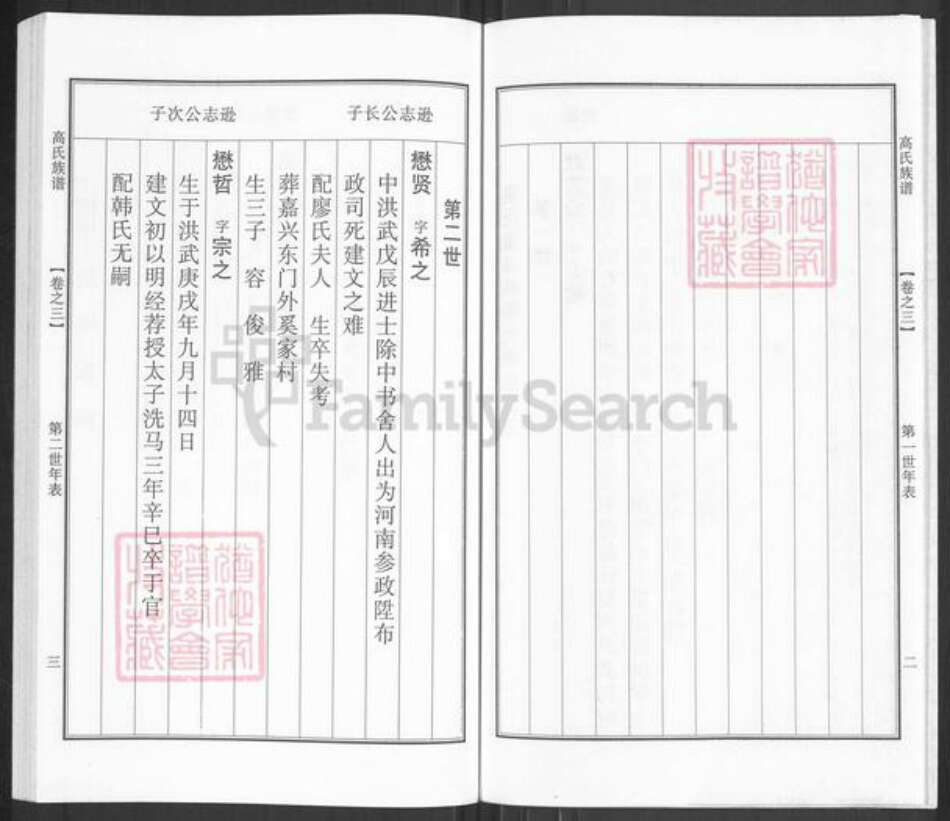 高氏族谱
【卷之三】
第一世年表
二
逊志公长子
逊志公次子
第二世
懋贤 字希之
中洪武戊辰进士除中书舍人出为河南参政陞布
政司死建文之难
配廖氏夫人 生卒失考
葬嘉兴东门外奚家村
生三子 容 俊 雅
懋哲 字宗之
生于洪武庚戌年九月十四日
建文初以明经荐授太子洗马三年辛巳卒于官
配韩氏无嗣
高氏族谱
【卷之三】
第二世年表
三
FamilySearch